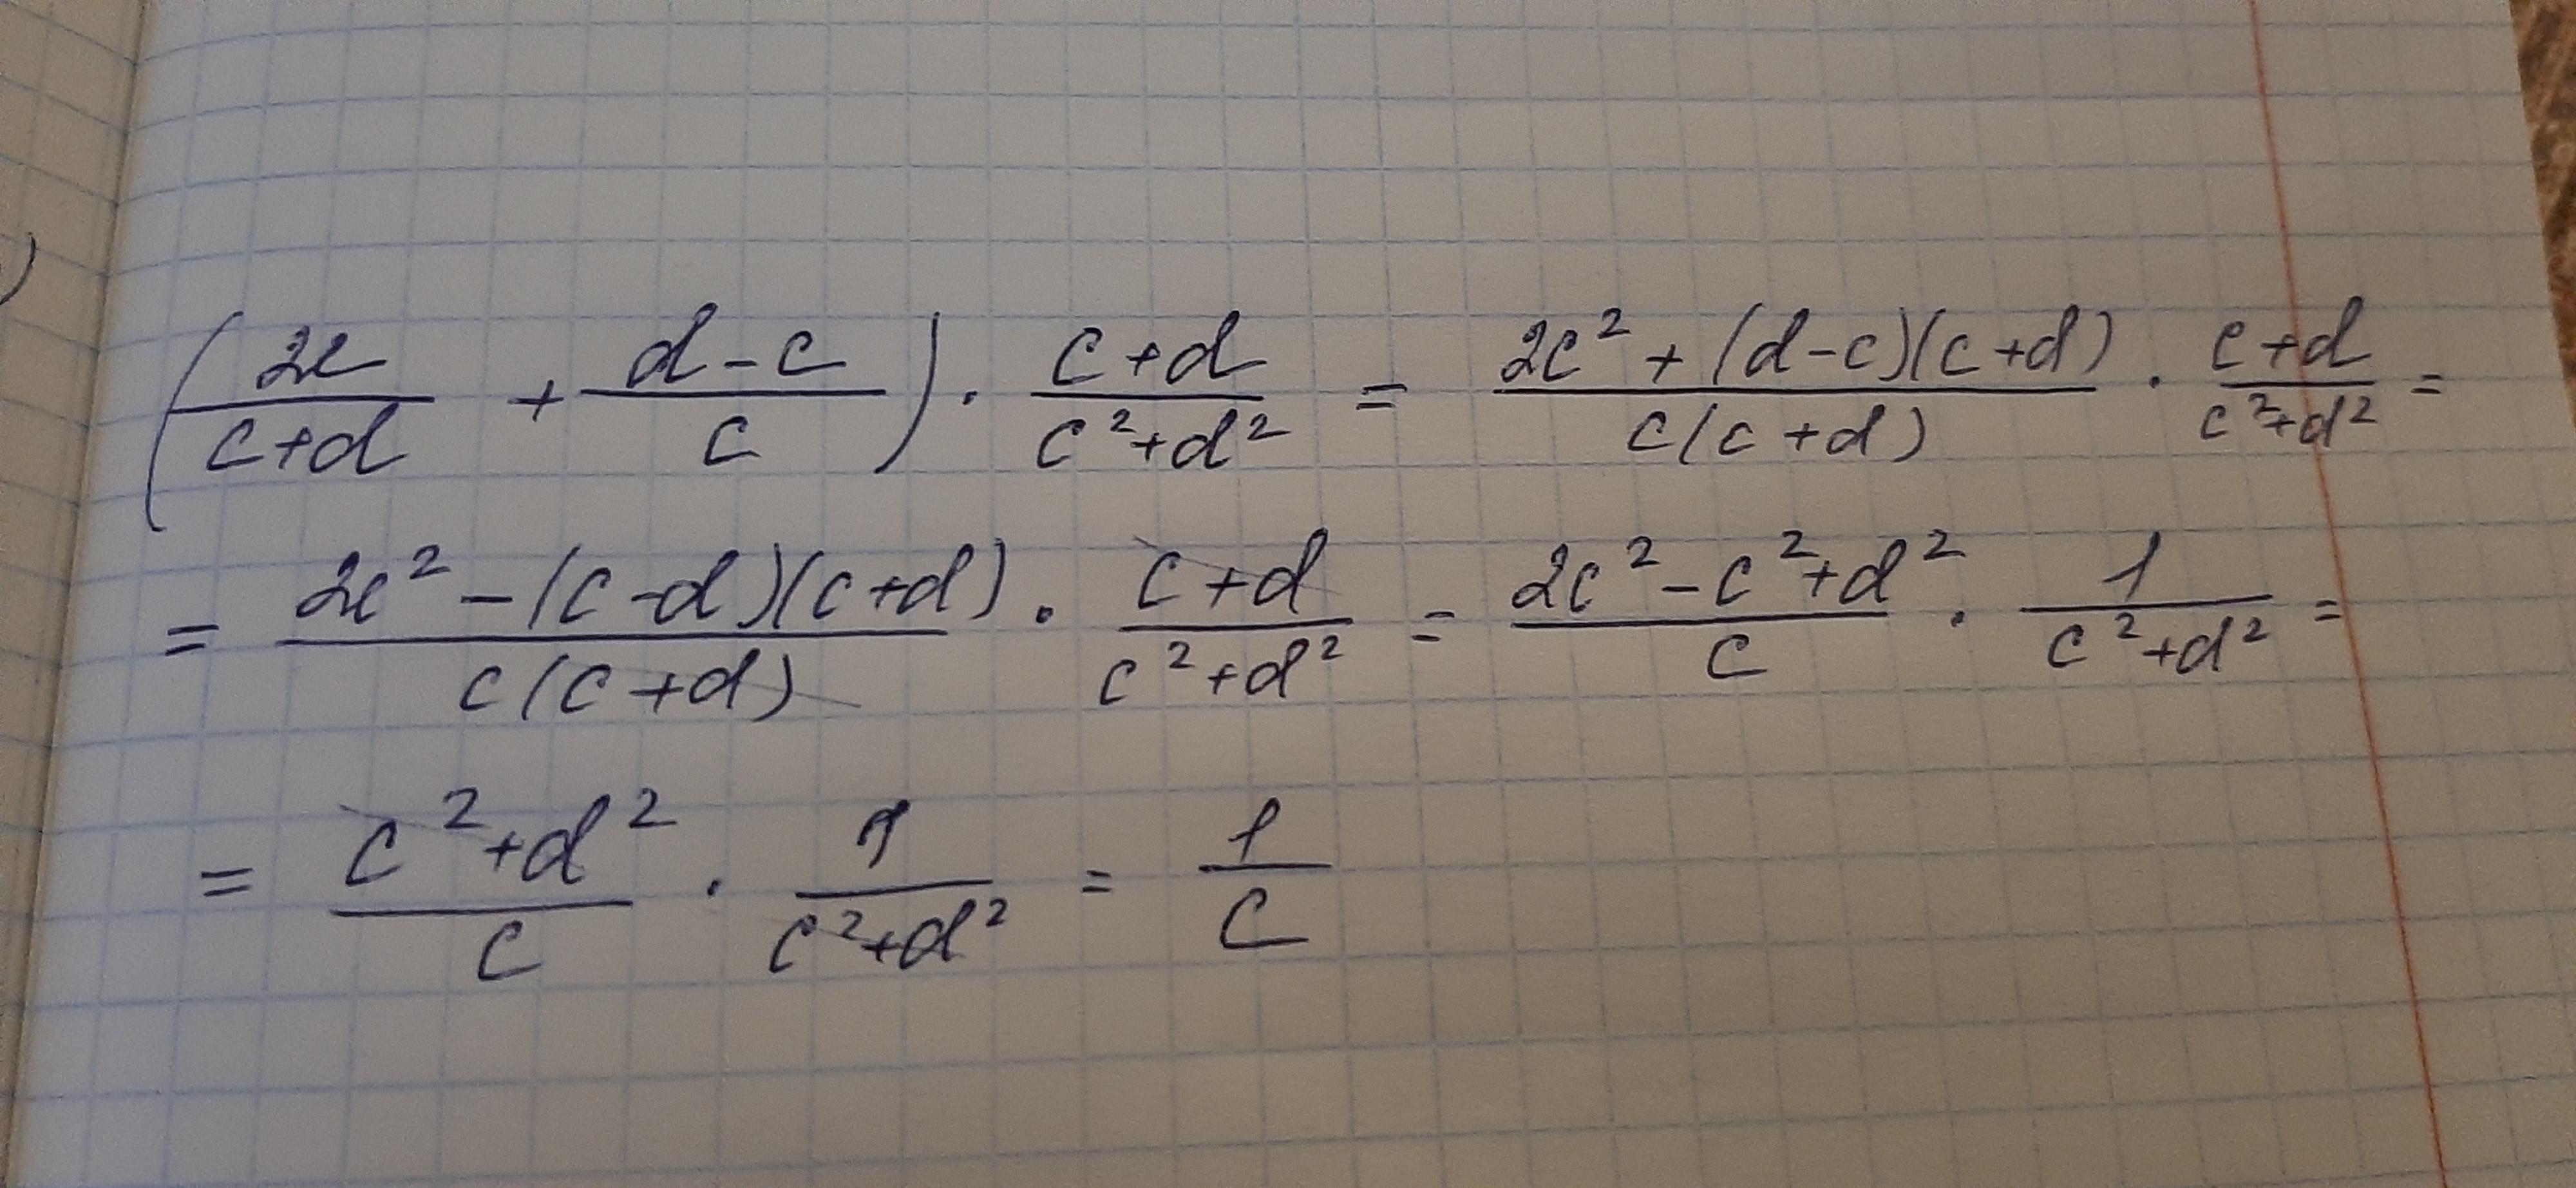 (2c/(c+d) + (d-c)/c) · (c+d)/(c²+d²) = (2c²+(d-c)(c+d))/(c(c+d)) · (c+d)/(c²+d²) =
= (2c²-(c-d)(c+d))/(c(c+d)) · (c+d)/(c²+d²) = (2c²-c²+d²)/c · 1/(c²+d²) =
= (c²+d²)/c · 1/(c²+d²) = 1/c